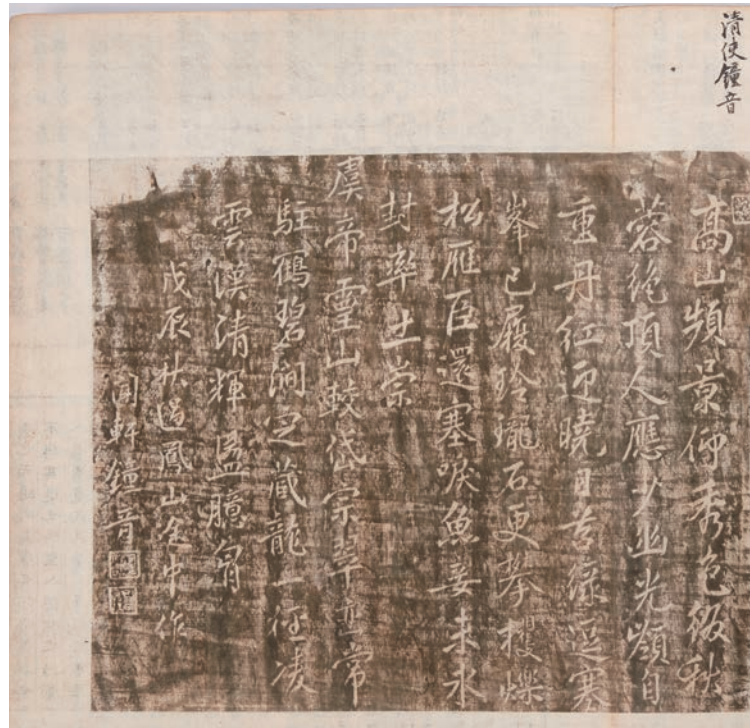 清使鐘音
高山頻景仰秀色秋
蓉絶頂人應少幽光嶺自
重丹紅迎曉日蒼綠逗寒
峯已履玲瓏石更攀爍
松雁臣還塞唳魚妾未氷
封率土崇
虞帝靈山較岱宗翠常
駐鶴碧澗足藏龍一徑凌
雲漢清輝盪臆胷
戊辰秋過鳳山途中作
軒鐘音